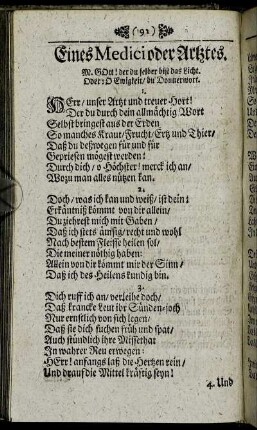 (91)
Eines Medici oder Artztes.
M. GOtt! der du selber bist das Licht.
Oder: O Ewigkeit/ du Donnerwort.
1.
HErr/ unser Artzt und treuer Hort!
Der du durch dein allmächtig Wort
Selbst bringest aus der Erden
So manches Kraut/ Frucht/ Ertz und Thier/
Daß du deßwegen für und für
Gepriesen mögest werden!
Durch dich/ o Höchster! merck ich an/
Wozu man alles nützen kan.
2.
Doch/ was ich kan und weiß/ ist dein!
Erkäntniß kömmt von dir allein/
Du zierest mich mit Gaben/
Daß ich stets ämsig/ recht und wohl
Nach bestem Fleisse heilen sol/
Die meiner nöthig haben:
Allein von dir kömmt mir der Sinn/
Daß ich des Heilens kundig bin.
3.
Dich ruff ich an/ verleihe doch/
Daß krancke Leut ihr Sünden-joch
Nur ernstlich von sich legen/
Daß sie dich suchen früh und spat/
Auch stündlich ihre Missethat
In wahrer Reu erwegen:
HErr! anfangs laß die Hertzen rein/
Und drauf die Mittel kräftig seyn!
4. Und